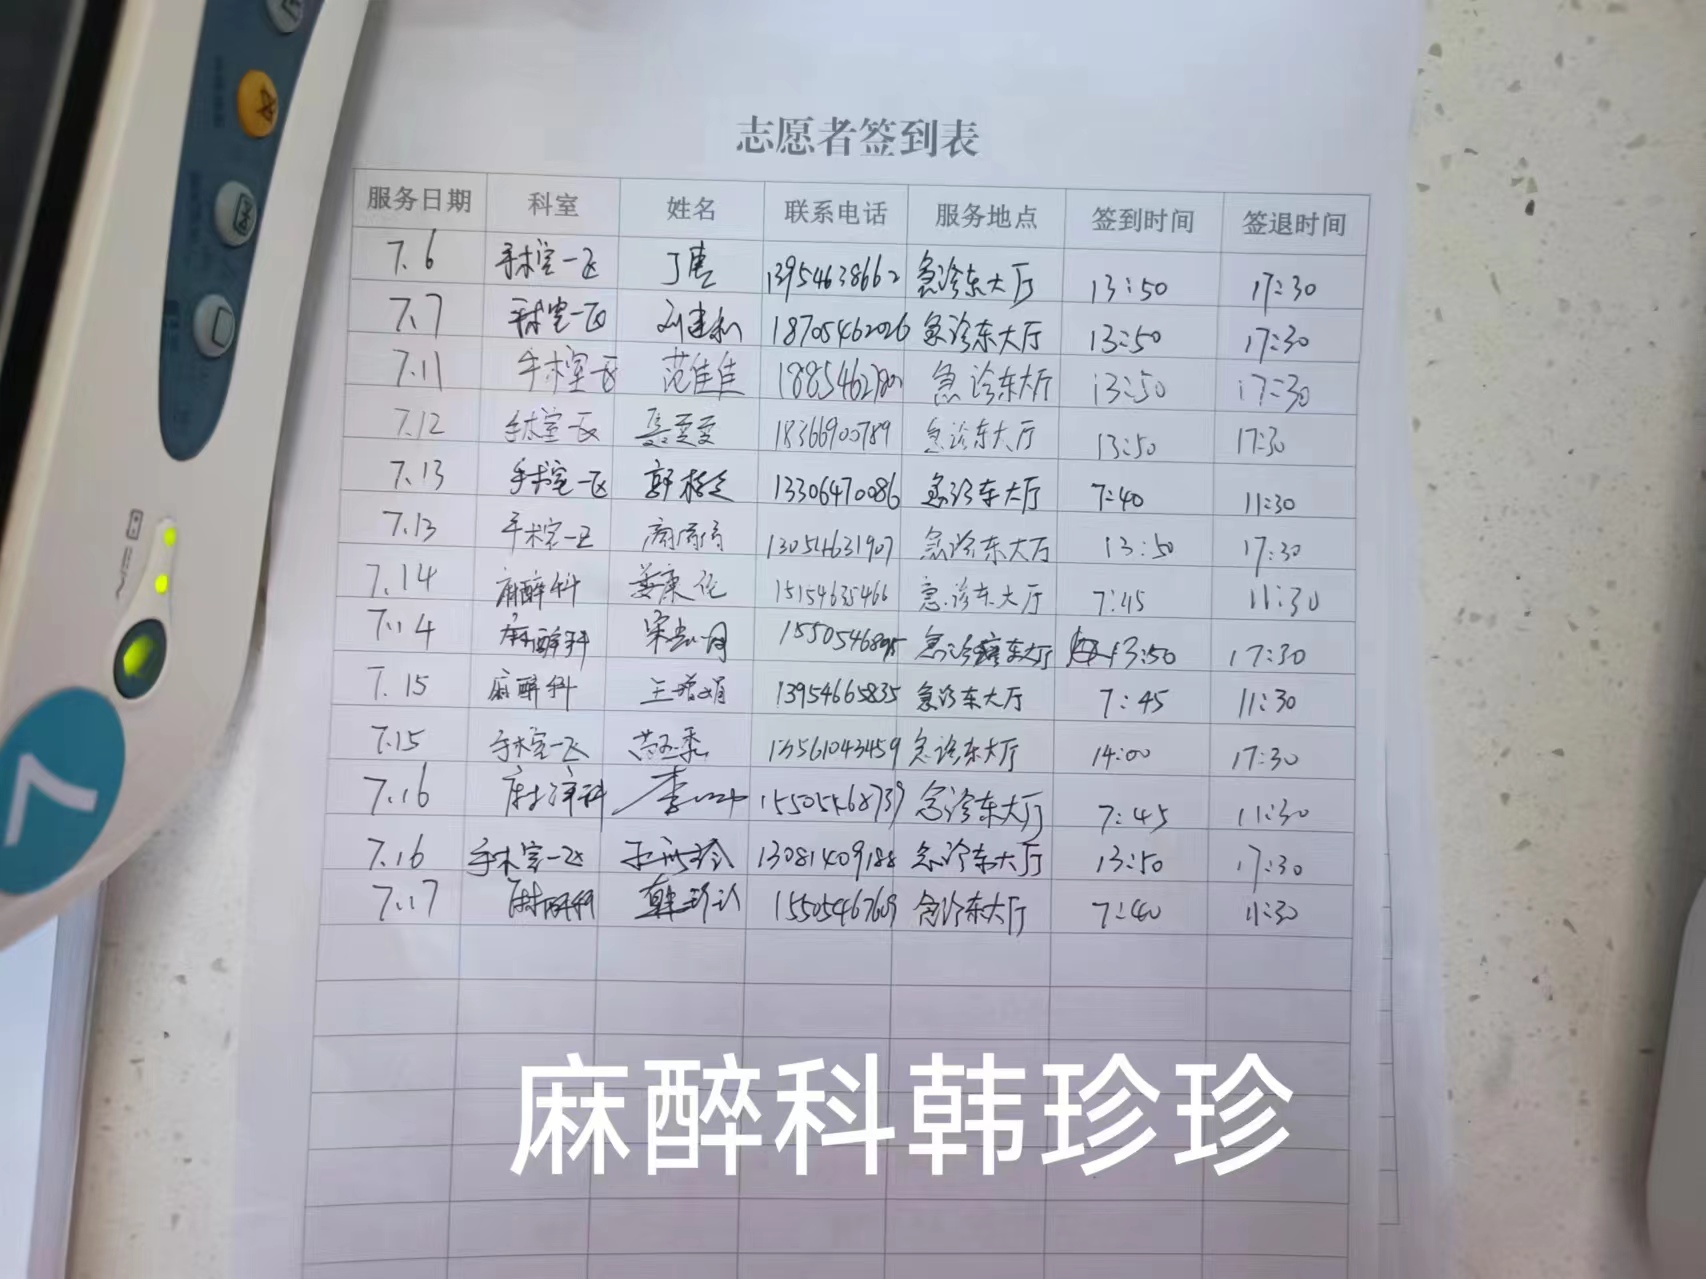 志愿者签到表
服务日期 科室 姓名 联系电话 服务地点 签到时间 签退时间
7.6 手术室一区 13954638662 急诊东大厅 13:50 17:30
7.7 手术室一区 18705462026 急诊东大厅 13:50 17:30
7.11 手术室一区 范佳佳 急诊东大厅 13:50 17:30
7.12 手术室一区 18366900789 急诊东大厅 13:50 17:30
7.13 手术室一区 13306470086 急诊东大厅 7:40 11:30
7.13 手术室一区 13054631907 急诊东大厅 13:50 17:30
7.14 麻醉科 姜康伦 15154635466 急诊东大厅 7:45 11:30
7.14 麻醉科 急诊东大厅 13:50 17:30
7.15 麻醉科 王增娟 13954665835 急诊东大厅 7:45 11:30
7.15 手术室一区 13561043459 急诊东大厅 14:00 17:30
7.16 麻醉科 李 15505468739 急诊东大厅 7:45 11:30
7.16 手术室一区 13081409188 急诊东大厅 13:50 17:30
7.17 麻醉科 韩珍珍 15505467609 急诊东大厅 7:40 11:30
麻醉科韩珍珍
7